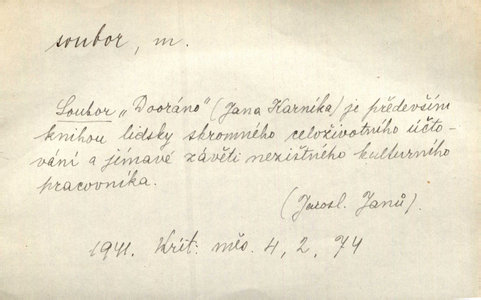 soubor, m.
Soubor „Dooráno" (Jana Karníka) je především
knihou lidsky skromného celoživotního účto-
vání a jímavé závěti nezištného kulturního
pracovníka.
(Jarosl. Janů).
1941. Krit. měs. 4, 2, 74